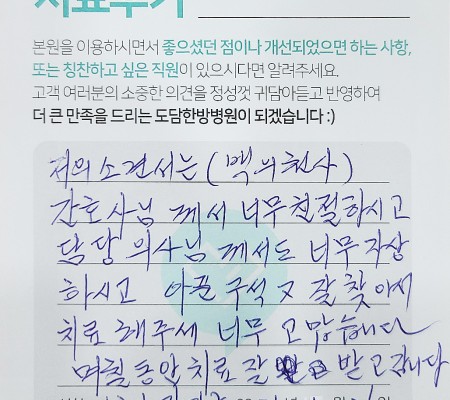 치료후기
본원을 이용하시면서 좋으셨던 점이나 개선되었으면 하는 사항,
또는 칭찬하고 싶은 직원이 있으시다면 알려주세요.
고객 여러분의 소중한 의견을 정성껏 귀담아듣고 반영하여
더 큰 만족을 드리는 도담한방병원이 되겠습니다 :)
저의 소견서는 (백의천사)
간호사님 께서 너무 친절하시고
담당 의사님 께서도 너무 자상
하시고 아픈 구석 잘 찾아서
치료 해주세 너무 고맙습니다
며칠 동안 치료 잘 받고 갑니다